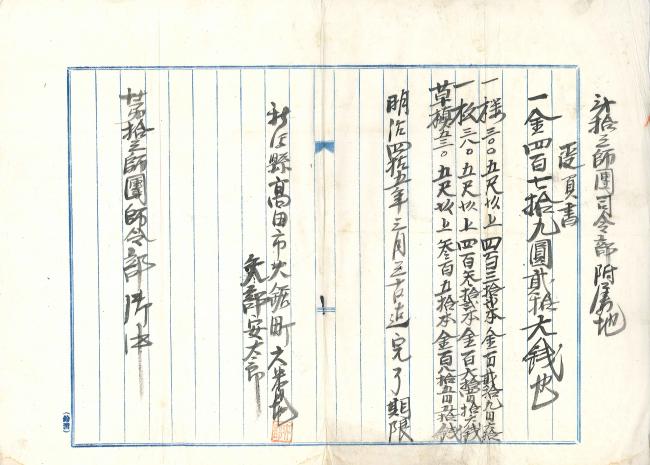 第拾三師團司令部附属地
受負書
一金四百七拾九圓貳拾六銭也
三〇〇 五尺以上 四百三拾貳本 金百貳拾九円六拾
一松 三八〇 五尺以上 四百参拾貳本 金百六拾四円拾六銭
五三〇 五尺以上 参百五拾本 金百八拾五円五拾銭
明治四拾五年三月三十日迄完了期限
新潟縣高田市大鋸町
安太郎
第拾三師團師令部 御中